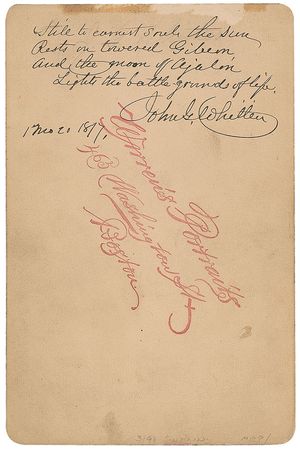 Still to earnest souls the sun
Rests on towered Gibeon
And the moon of Ajalon
Lights the battle grounds of life.
John G. Whittier
Warren's Portraits
465 Washington St
Boston